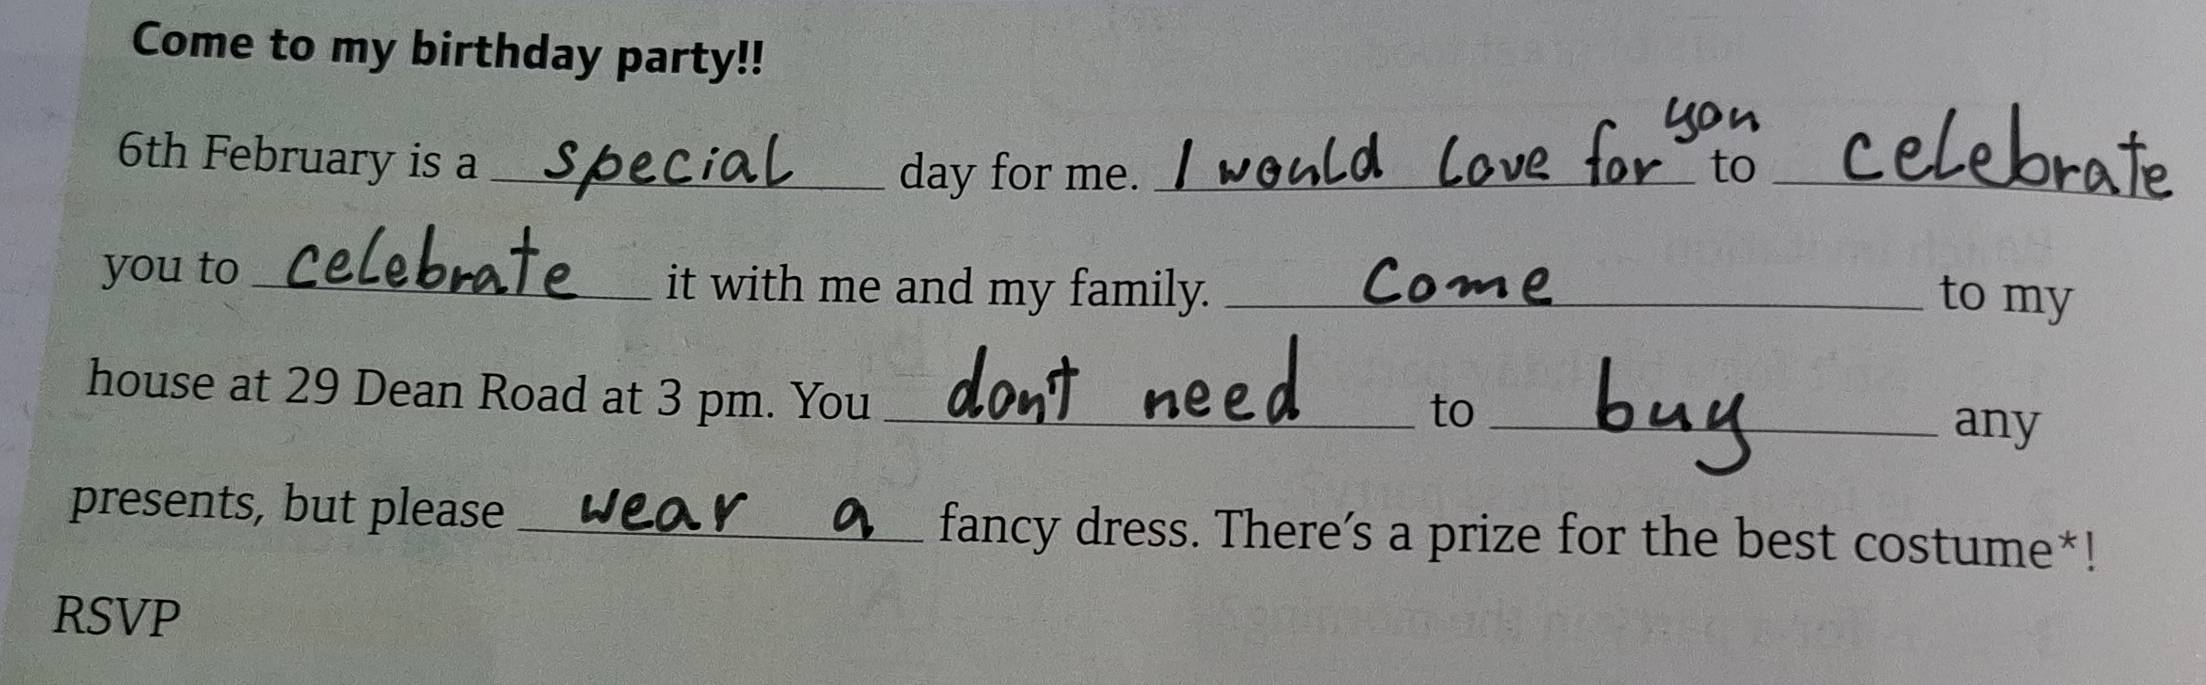 Come to my birthday party!!
6th February is a special day for me. I would love for you to celebrate
you to celebrate it with me and my family. Come to my
house at 29 Dean Road at 3 pm. You don't need to buy any
presents, but please wear a fancy dress. There's a prize for the best costume*!
RSVP